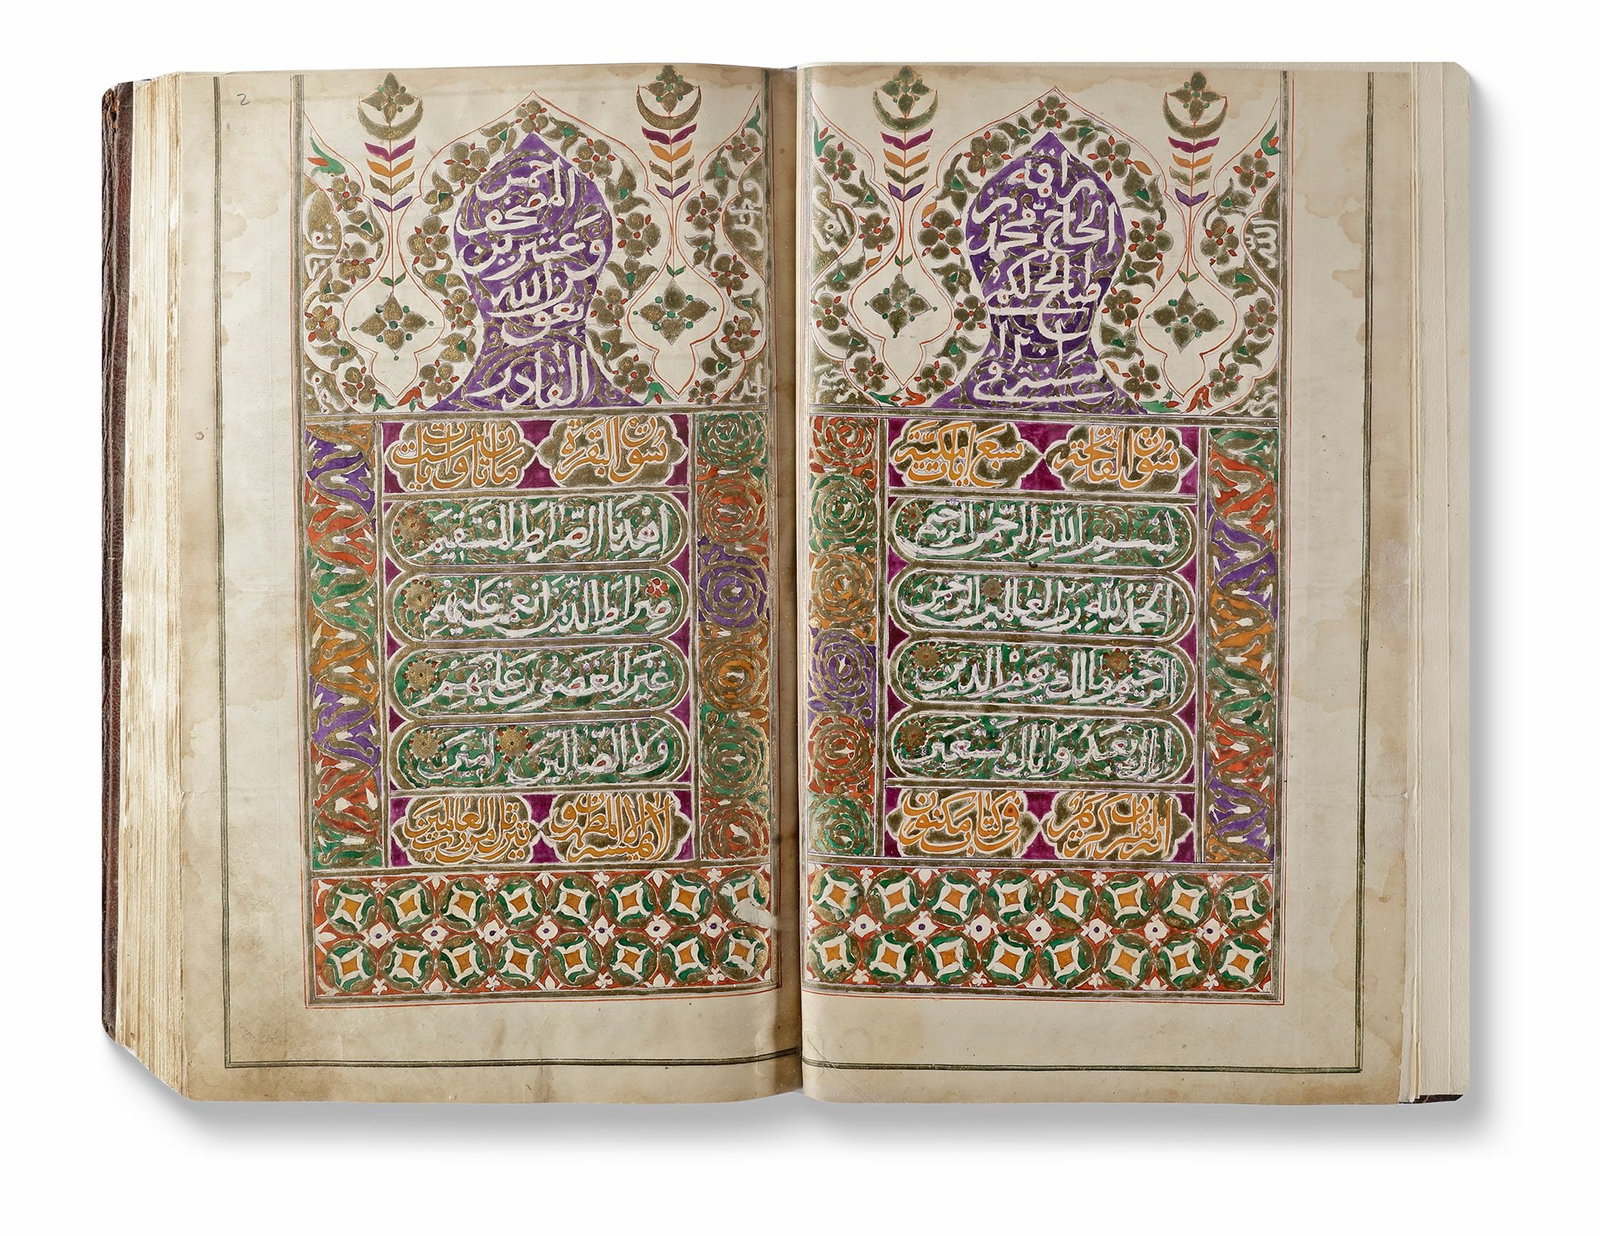 راقمه
الحاج محمد
سورة الفاتحة سبع آيات مكية
بسم الله الرحمن الرحيم
الحمد لله رب العالمين الرحمن
الرحيم مالك يوم الدين
اياك نعبد واياك نستعين
انه لقران كريم في كتاب مكنون
خمس
المصحف
وعشرين
الله
بعون
القادر
سورة البقرة مائتان وآيات
اهدنا الصراط المستقيم
صراط الذين انعمت عليهم
غير المغضوب عليهم
ولا الضالين امين
لا يمسه الا المطهرون تنزيل من رب العالمين
2